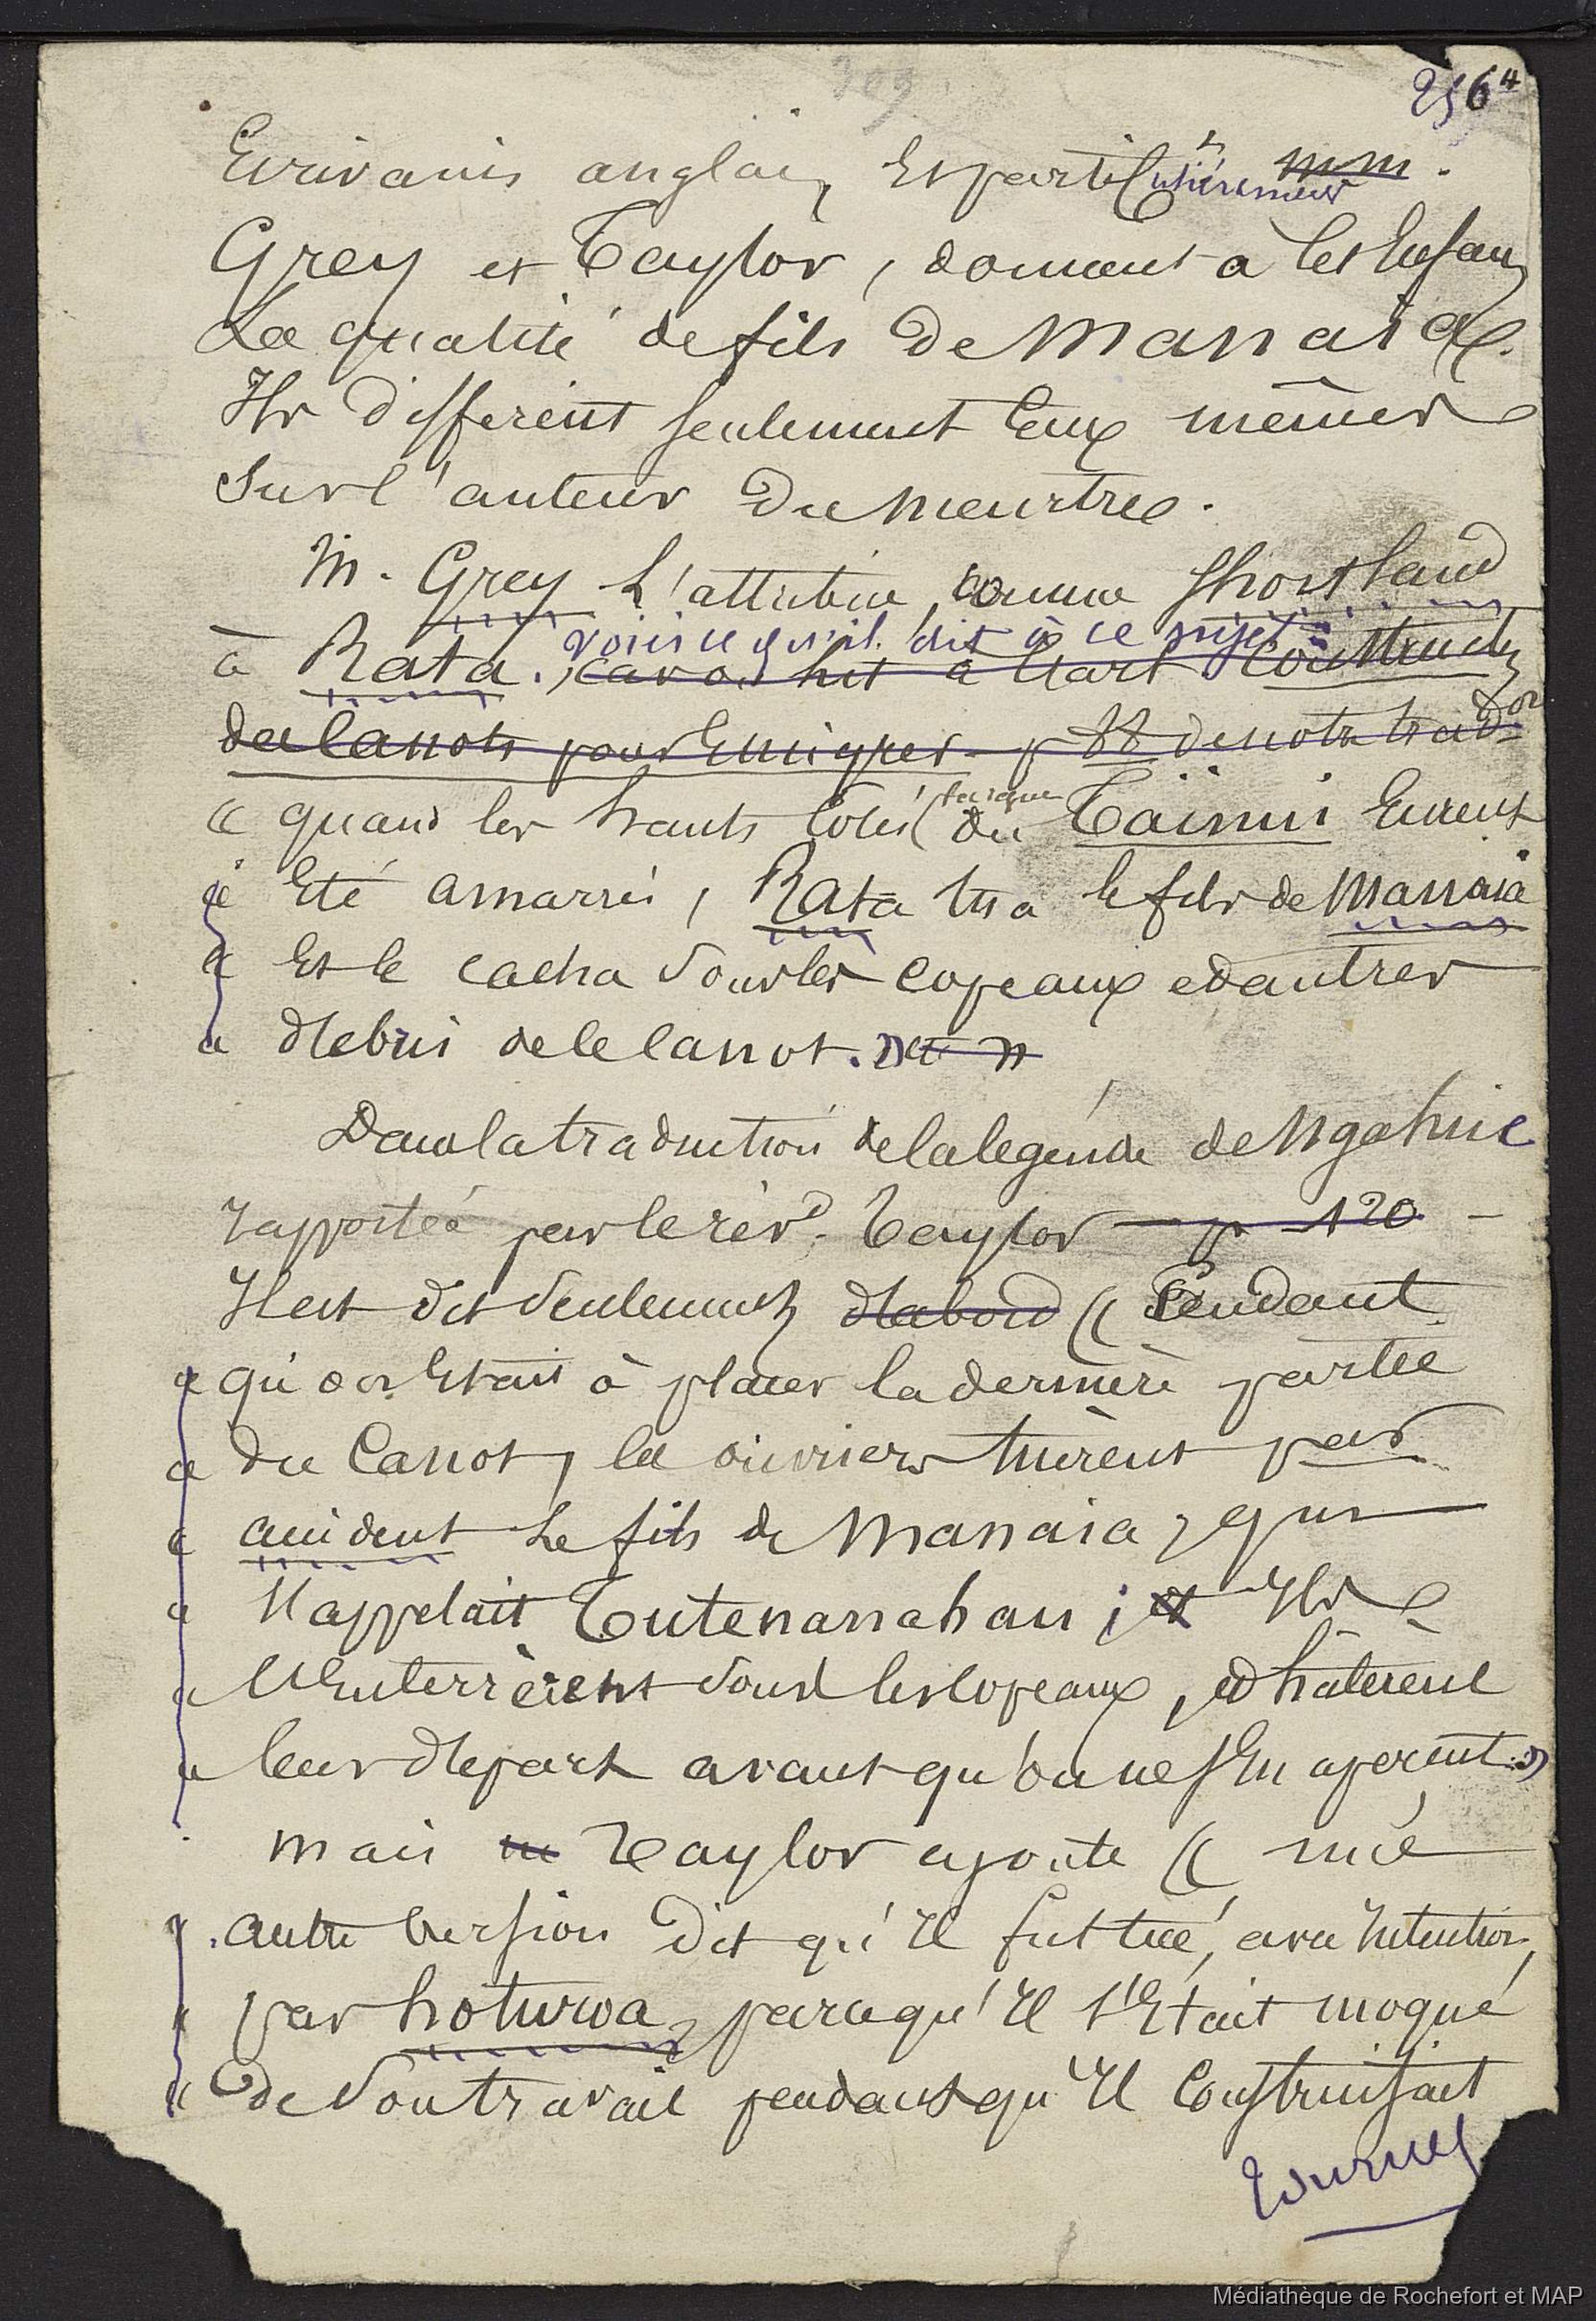 256 4
Ecrivains anglais, Et partic ulièrement mm.
Grey et Taylor, donnent à cet Enfant
La qualité de fils de Manaia.
Ils différent seulement Eux mêmes
Sur l'auteur du meurtre.
M. Grey L'attribue, comme Shortland
voici ce qu'il dit à ce sujet :
à Rata. car on lit à l'art construct
des canots pour Emigrer - p 88 de notre trad on
« quand les hauts Côtés (du Taïnui Eurent
« Eté amarrés, Rata tua le fils de Manaia
« Et le cacha sous les copeaux et d'autres
« débris de ce canot. »
Dans la traduction de la legende de Ngahue
rapportée par le rév d. Taylor — p 120 —
Il est dit seulement d'abord « Pendant
« qu'on Etait à placer la dernière partie
« du Canot, les ouvriers tuèrent par
« accident Le fils de Manaia, qui
« s'appelait Tutenanahau ; et Ils
« l'Enterrèrent sous les copeaux, et hâtèrent
« leur départ avant qu'on ne s'En aperçut. »
mais Taylor ajoute « une
« autre version dit qu'Il fut tué, avec Intention,
« par hoturoa, parcequ'Il s'Etait moqué
« de son travail pendant qu'Il Construisait
Tournez
Médiathèque de Rochefort et MAP